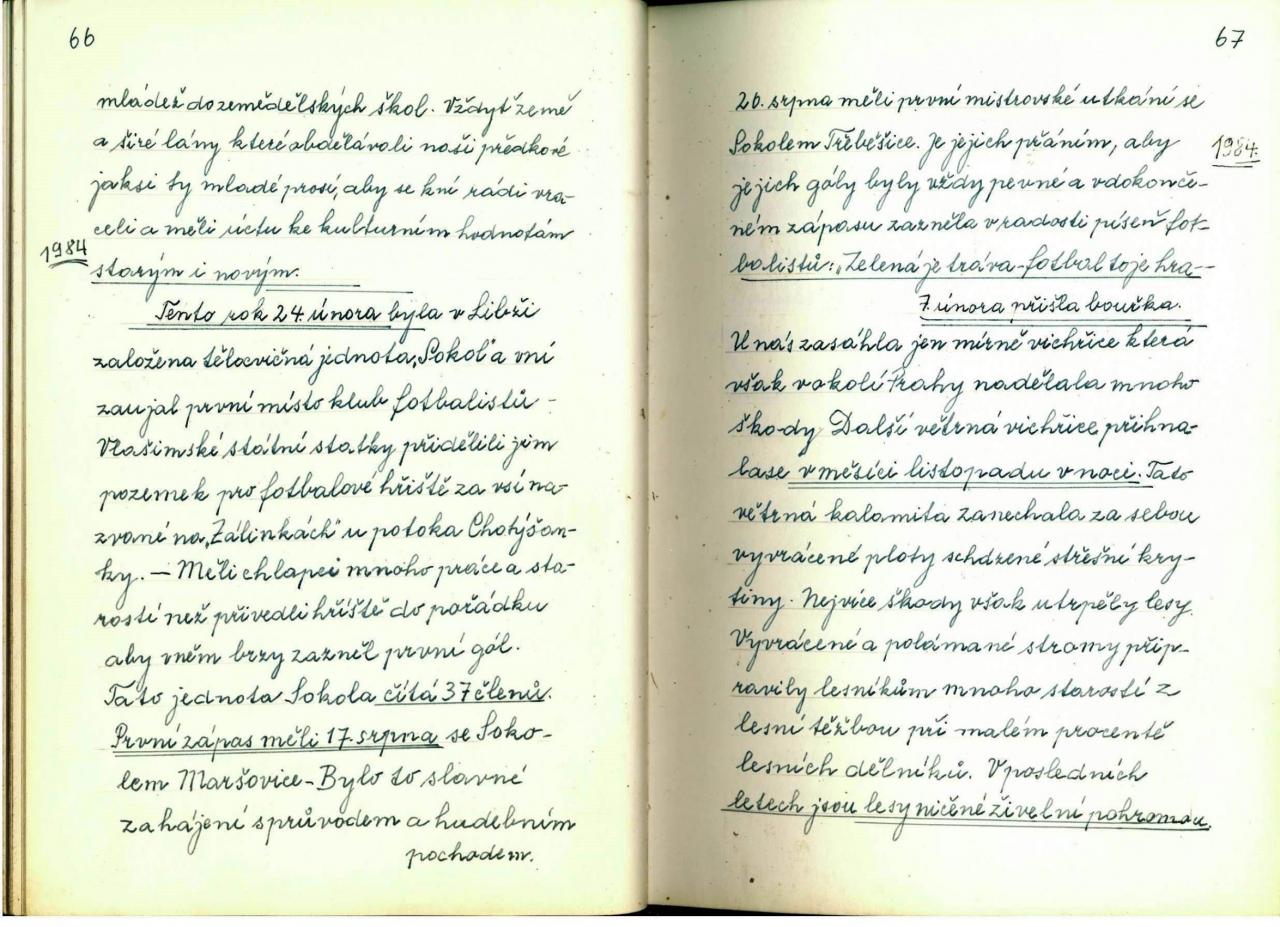 66
mládež do zemědělských škol. Vždyť země
a širé lány které obdělávali naši předkové
jaksi ty mladé prosí, aby se k ní rádi vra-
celi a měli úctu ke kulturním hodnotám
1984
starým i novým.
Tento rok 24. února byla v Libži
založena tělocvičná jednota „Sokol" a v ní
zaujal první místo klub fotbalistů -
Vlašimské státní statky přidělili jim
pozemek pro fotbalové hřiště za vsí na-
zvané na „Zálinkách" u potoka Chotýšan-
ky. — Měli chlapci mnoho práce a sta-
rostí než přivedli hřiště do pořádku
aby v něm brzy zazněl první gól.
Tato jednota Sokola čítá 37 členů.
První zápas měli 17. srpna se Soko-
lem Maršovice - Bylo to slavné
zahájení s průvodem a hudebním
pochodem.
67
26. srpna měli první mistrovské utkání se
Sokolem Třebešice. Je jejich přáním, aby
1984.
jejich góly byly vždy pevné a v dokonče-
ném zápasu zazněla v radosti píseň fot-
balistů: „Zelená je tráva - fotbal to je hra -
7. února přišla bouřka.
U nás zasáhla jen mírně vichřice která
však v okolí Prahy nadělala mnoho
škody Další větrná vichřice přihna-
la se v měsíci listopadu v noci. Tato
větrná kalamita zanechala za sebou
vyvrácené ploty schdzené střešní kry-
tiny. Nejvíce škody však utrpěly lesy.
Vyvrácené a polámané stromy přip-
ravily lesníkům mnoho starostí z
lesní těžbou při malém procentě
lesních dělníků. V posledních
letech jsou lesy ničené živelní pohromou.